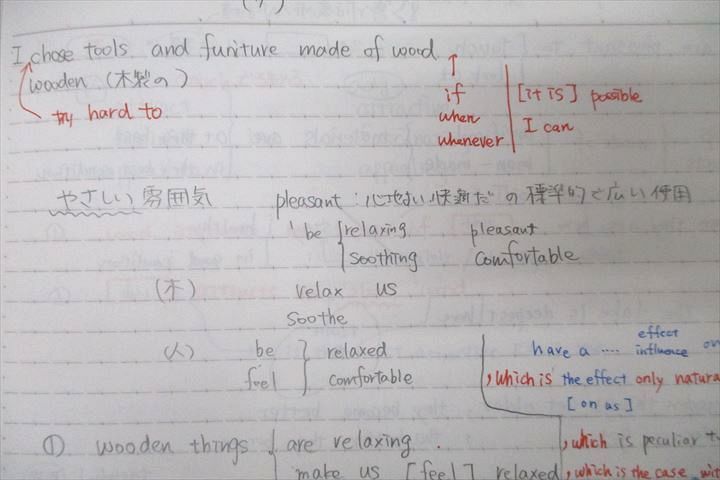 I chose tools and funiture made of wood
wooden (木製の)
try hard to
if
when
whenever
[it is] possible
I can
やさしい 雰囲気
pleasant : 心地よい 快適だ の 標準的で広い使用
be relaxing pleasant
soothing comfortable
(木) relax us
soothe
(人) be relaxed
feel comfortable
have a .... effect
influence on
, which is the effect only natura
[on us]
① wooden things are relaxing.
make us [feel] relaxed
, which is peculiar t
, which is the case wit